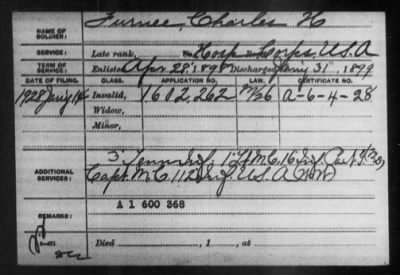 NAME OF SOLDIER: Furnee, Charles H
SERVICE: Late rank, Hosp Corps, U.S.A
TERM OF SERVICE: Enlisted Apr 28, 1898 Discharged 31", 1899
DATE OF FILING. CLASS. APPLICATION NO. LAW. CERTIFICATE NO.
1928 Invalid, 1602,262 A-6-4-28
Widow,
Minor,
ADDITIONAL SERVICES: 3" Tenn Inf, 1" Lt M.C. 16 Inf
Capt. M.C. 112 Inf U.S.A
A 1 600 268
REMARKS:
Died , 1 , at